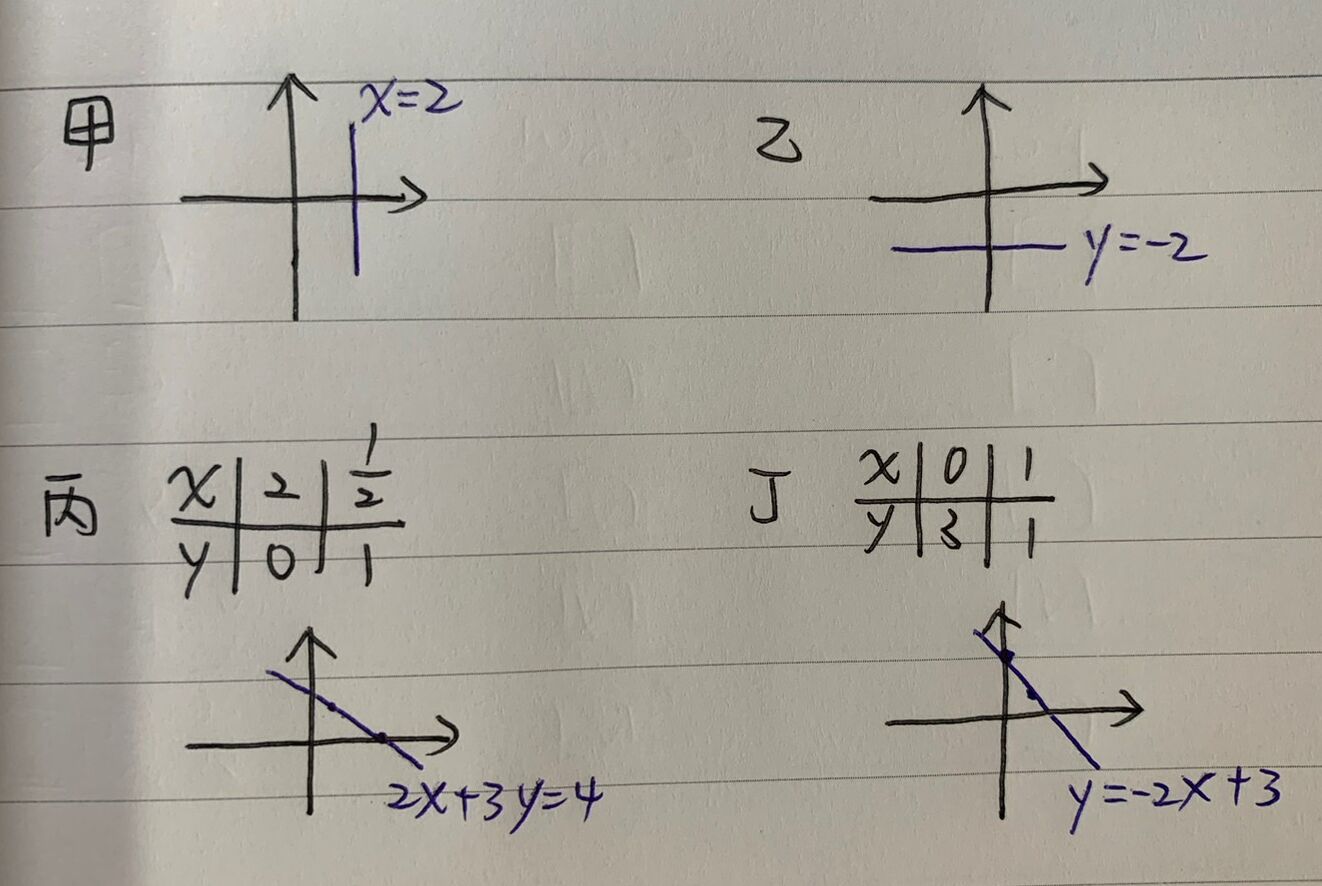 甲
x=2
乙
y=-2
丙
x | 2 | 1/2
y | 0 | 1
2x+3y=4
丁
x | 0 | 1
y | 3 | 1
y=-2x+3